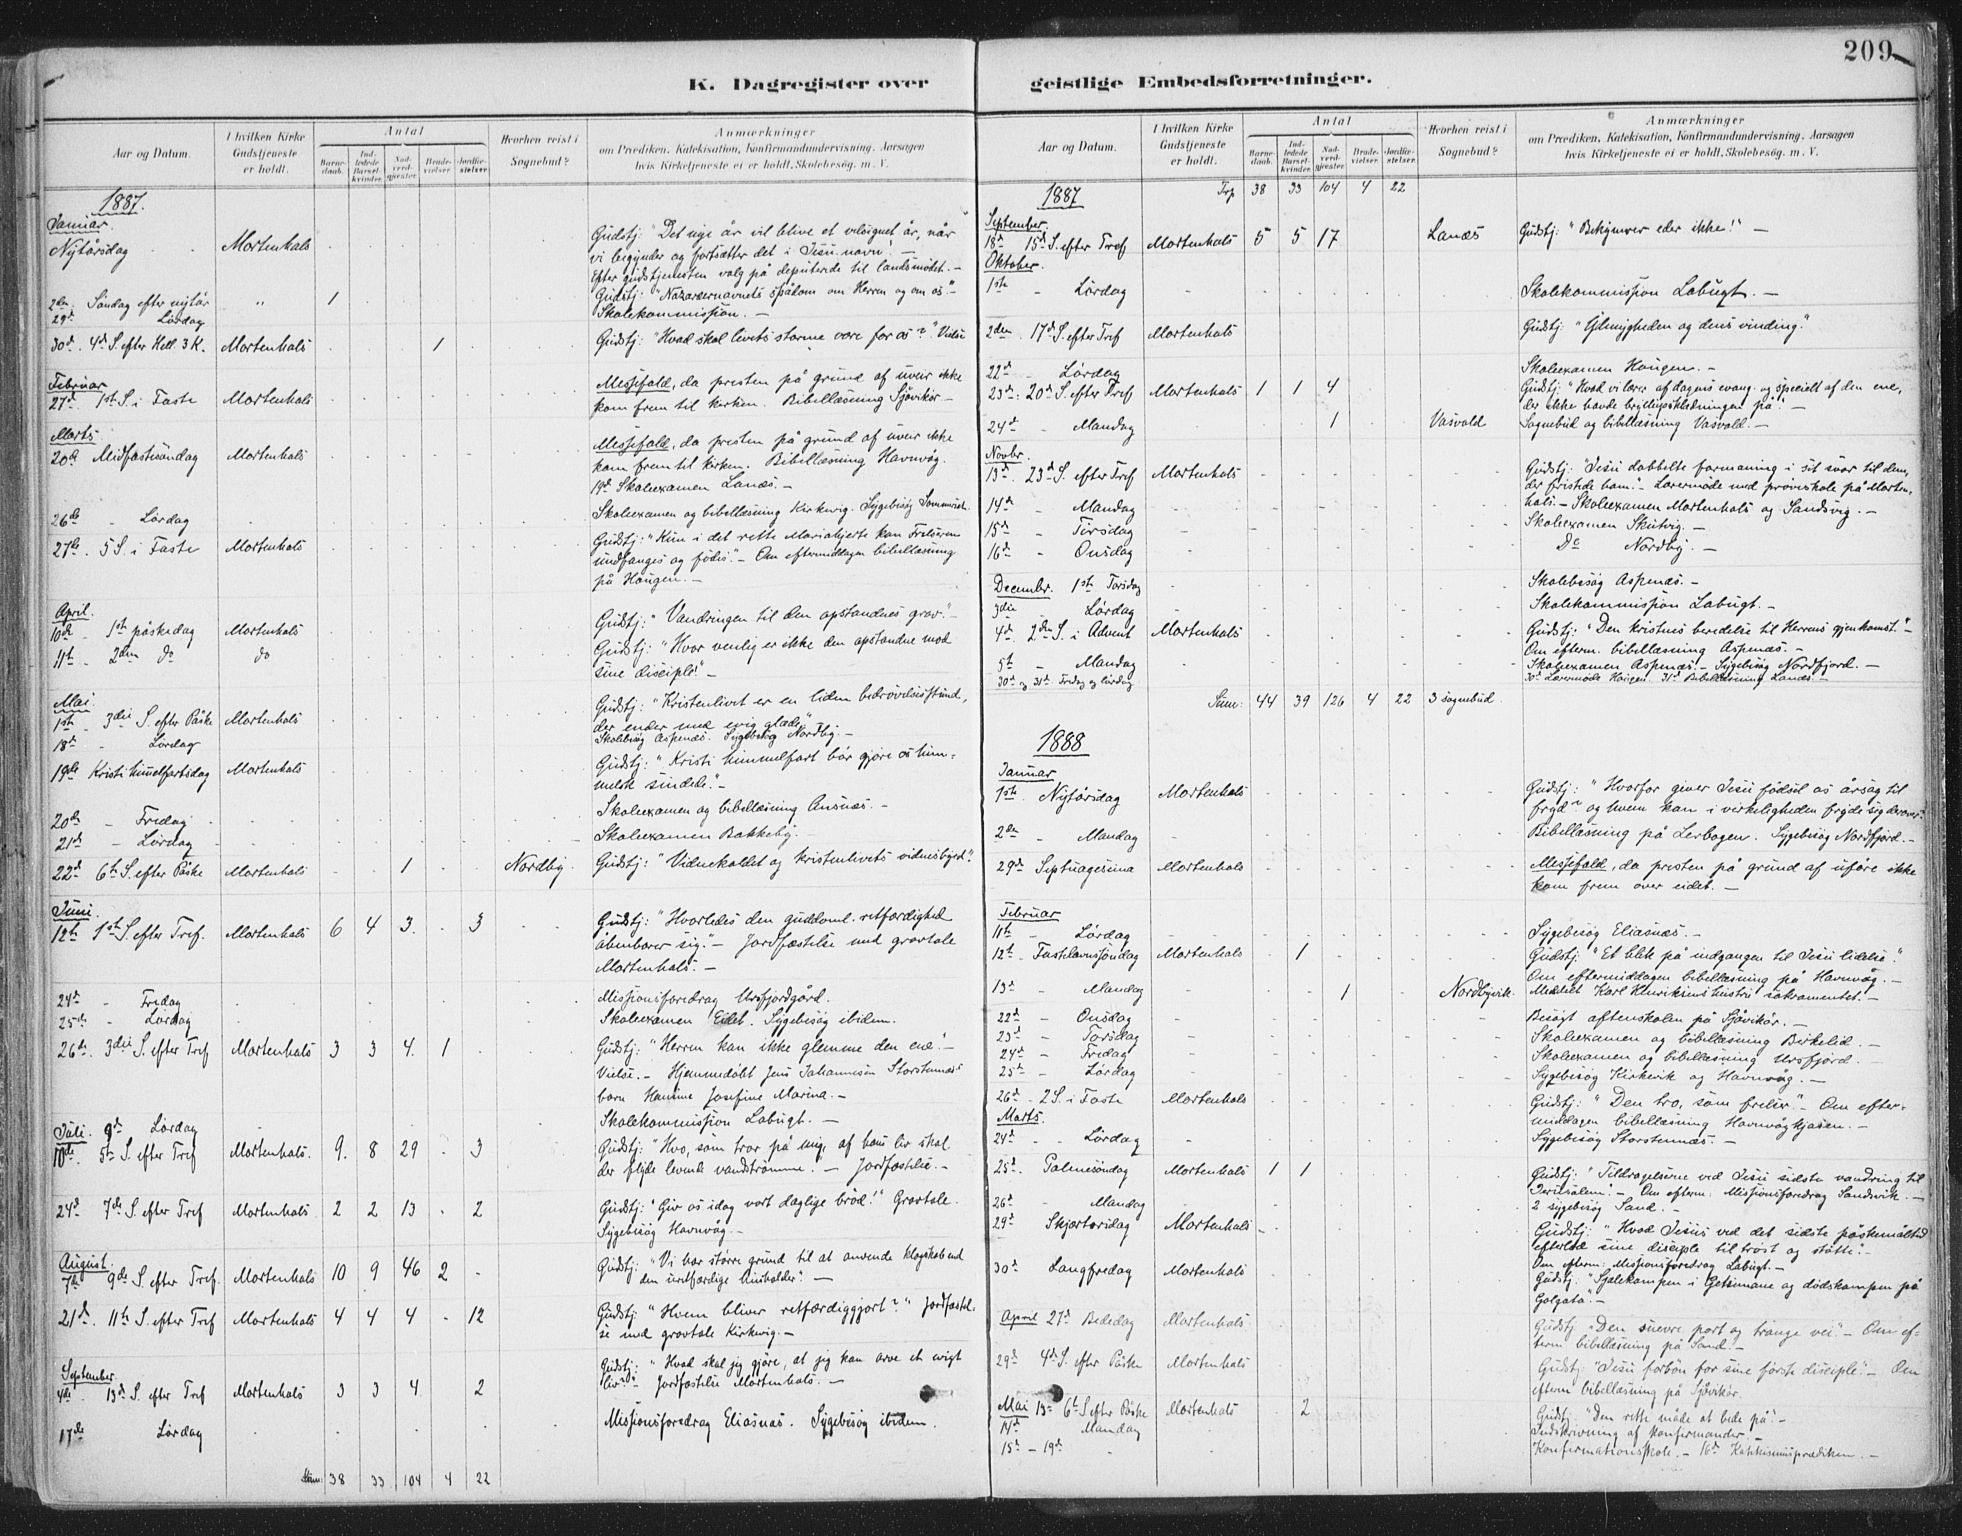 209
K. Dagregister over geistlige Embedsforretninger.
Aar og Datum.
I hvilken Kirke Gudstjeneste er holdt.
Antal
Barnedaab.
Indledede Barselkvinder.
Nadverdgjester.
Brudevielser.
Jordfæstelser.
Hvorhen reist i Sognebud?
Anmærkninger
om Prædiken, Katekisation, Konfirmandundervisning. Aarsagen
hvis Kirketjeneste ei er holdt, Skolebesøg. m. V.
1887.
Januar.
Nytårsdag Mortenhals Gudstj: "Det nye år vil blive et velsignet år, når
vi begynder og fortsætter det i Jesu navn". —
Efter gudstjenesten valg på deputerede til landsmødet. —
2den Søndag efter nytår " 1 Gudstj: "Nazaræernavnets spådom om Herren og om os". —
29d Lørdag Skolekommission. —
30d. 4d S. efter Hell. 3 K. Mortenhals 1 Gudstj: "Hvad skal livets storme være for os?" Vielse
Februar
27d 1st S. i Faste Mortenhals Messefald, da presten på grund af uveir ikke
kom frem til kirken. Bibellæsning Sjøvikør —
Marts
20de Midfastesøndag Mortenhals Messefald, da presten på grund af uveir ikke
kom frem til kirken. Bibellæsning Havnvåg.
19d Skoleexamen Lanæs. —
26de - Lørdag Skoleexamen og bibellæsning Kirkevig. Sygebesøg
27de. 5 S. i Faste Mortenhals Gudstj: "Kun i det rette Mariahjerte kan Frelseren
undfanges og fødes". — Om eftermiddagen bibellæsning
på Haugen. —
April.
10de - 1st påskedag Mortenhals Gudstj: "Vandringen til den opstandnes grav". —
11te - 2den do do Gudstj: "Hvor venlig er ikke den opstandne mod
sine disciple!" —
Mai.
1st - 3die S. efter Påske Mortenhals Gudstj: "Kristenlivet er en liden bedrøvelsesstund,
der ender med evig glæde".
18d - Lørdag Skolebesøg Aspenæs. Sygebesøg Nordby. —
19de Kristi himmelfartsdag Mortenhals Gudstj: "Kristi himmelfart bør gjøre os him-
melsk sindede". —
20de - Fredag Skoleexamen og bibellæsning Ansnæs. —
21d - Lørdag Skoleexamen Bakkeby. —
22d 6te S. efter Påske Mortenhals 1 Nordby. Gudstj: "Vidnekaldet og kristenlivets vidnesbyrd".
Juni.
12te 1st S. efter Tref. Mortenhals 6 4 3 3 Gudstj: "Hvorledes den guddoml. retfærdighed
åbenbarer sig". — Jordfæstelse med gravtale
Mortenhals. —
24d - Fredag Missionsforedrag Ursfjordgård.
25de - Lørdag Skoleexamen Eidet. Sygebesøg ibidem.
26de. 3die S. efter Tref Mortenhals 3 3 4 1 Gudstj: "Herren kan ikke glemme den ene". —
Vielse. — Hjemmedøbt Jens Johannesen Storstennæs's
barn Hanine Josefine Marina. —
Juli. 9d Lørdag Skolekommission Labugt. —
10de 5te S. efter Tref Mortenhals. 9. 8 29 3 Gudstj: "Hvo, som tror på mig, af hans liv skal
der flyde levende vandstrømme". — Jordfæstelse. —
24d 7de S. efter Tref Mortenhals 2 2 13 2 Gudstj: "Giv os idag vort daglige brød!" Gravtale.
Sygebesøg Havnvåg. —
August.
7de 9de S. efter Tref. Mortenhals 10 9 46 2 Gudstj: "Vi har større grund til at anvende klogskab end
den uretfærdige husholder". —
21d. 11te S. efter Tref Mortenhals 4 4 4 12 Gudstj: "Hvem bliver retfærdiggjort?" Jordfæstel-
se med gravtale Kirkevig. —
September
4de. 13d S. efter Tref Mortenhals 3 3 4 2 Gudstj: "Hvad skal jeg gjøre, at jeg kan arve et evigt
liv?" Jordfæstelse Mortenhals. —
17de Lørdag Missionsforedrag Eliasnæs. Sygebesøg ibidem.
Sum: 38 33 104 4 22
Aar og Datum.
I hvilken Kirke Gudstjeneste er holdt.
Antal
Barnedaab.
Indledede Barselkvinder.
Nadverdgjester.
Brudevielser.
Jordfæstelser.
Hvorhen reist i Sognebud?
Anmærkninger
om Prædiken, Katekisation, Konfirmandundervisning. Aarsagen
hvis Kirketjeneste ei er holdt, Skolebesøg. m. V.
1887 Trp 38 33 104 4 22
September.
18d 15d S. efter Tref Mortenhals 5 5 17 Lanæs Gudstj: "Bekymrer eder ikke!" —
Oktober.
1ste - Lørdag Skolekommission Labugt. —
2den. 17d S. efter Tref Mortenhals Gudstj: "Ydmygheden og dens vinding."
22d - Lørdag Skoleexamen Haugen. —
23de: 20d S. efter Tref. Mortenhals 1 1 4 Gudstj: "Hvad vi lærer af dagens evang. og specielt af den ene,
der ikke havde bryllupsklædningen på". —
24d - Mandag 1 Vasvold Sognebud og bibellæsning Vasvold. —
Novbr.
13d. 23d S. efter Tref Mortenhals Gudstj: "Jesu dobbelte formaning i sit svar til dem,
der fristede ham". Lærermøde med prøveskole på Morten-
14d - Mandag hals. — Skoleexamen Mortenhals og Sandsvig. —
15d - Tirsdag Skoleexamen Skutvig. —
16d - Onsdag Do Nordby. —
December. 1st Torsdag Skolebesøg Aspenæs. —
3die Lørdag Skolekommission Labugt. —
4d. 2den S. i Advent Mortenhals Gudstj: "Den kristnes beredelse til Herrens gjenkomst." —
Om efterm. bibellæsning Aspenæs. —
5te - Mandag Skoleexamen Aspenæs. — Sygebesøg Nordfjord. —
30d og 31d Fredag og lørdag 30d Lærermøde Haugen. 31d Bibellæsning Lanæs —
Sum: 44 39 126 4 22 3 sognebud.
1888
Januar
1ste. Nytårsdag Mortenhals Gudstj: "Hvorfor giver Jesu fødsel os årsag til
fryd? og hvem kan i virkeligheden fryde sig derover".
2den - Mandag Bibellæsning på Lerbogen. Sygebesøg Nordfjord. —
29d Septuagesima Mortenhals Messefald, da presten på grund af uføre ikke
kom frem over eidet. —
Februar
11te - Lørdag Sygebesøg Eliasnæs. —
12te - Fastelavnssøndag Mortenhals 1 Gudstj: "Et blik på indgangen til Jesu lidelse."
Om eftermiddagen bibellæsning på Havnvåg. —
13d - Mandag 1 Nordbyvik. Meddelt Karl Henriksens hustru sakramentet. —
22d - Onsdag Besøgt aftenskolen på Sjøvikør. —
23d - Torsdag Skoleexamen og bibellæsning Birkelid. —
24d - Fredag Skoleexamen og bibellæsning Ursfjord. —
25d - Lørdag Sygebesøg Kirkevik og Havnvåg. —
26d - 2 S. i Faste Mortenhals Gudstj: "Den tro, som frelser". — Om efter-
Marts. middagen bibellæsning Havnvågkjosen. —
24d - - Lørdag Sygebesøg Storstennæs. —
25d. Palmesøndag Mortenhals 1 1 Gudstj: "Tildragelserne ved Jesu sidste vandring til
Jerusalem. — Om efterm: Missionsforedrag Sandsvik. —
26d - Mandag 2 sygebesøg Sand. —
29d Skjærtorsdag Mortenhals Gudstj: "Hvad Jesus ved det sidste påskemåltid
efterlod sine disciple til trøst og støtte". —
Om efterm: Missionsforedrag Labugt. —
30d Langfredag Mortenhals Gudstj: "Sjælekampen i Getsemane og dødskampen på
Golgata". —
April 27d Bededag Mortenhals Gudstj. "Den snevre port og trange vei". — Om ef-
term bibellæsning på Sand. —
29d 4d S. efter Påske Mortenhals Gudstj: "Jesu forbøn for sine første disciple". — Om
efterm bibellæsning på Sjøvikør.
Mai 13d 6te S. efter Påske Mortenhals 2 Gudstj: "Den rette måde at bede på". —
14d Mandag Indskrivning af konfirmander. —
15d — 19d Konfirmationsskole. — 16d Katekismusprædiken. —